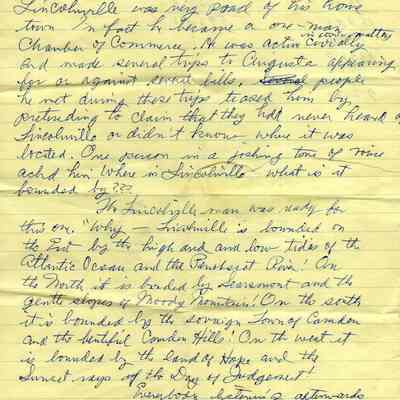 Lincolnville was very proud of his home
town. In fact he became a one-man
Chamber of Commerce. He was active civically
in town matters
and made several trips to Augusta appearing
for or against several bills. people
he met during these trips teased him by
pretending to claim that they had never heard of
Lincolnville or didn't know where it was
located. One person in a joshing tone of voice
asked him "Where in Lincolnville - what is it
bounded by???
The Lincolnville man was ready for
this one. "Why - Lincolnville is bounded on
the East by the high and and low tides of the
Atlantic Ocean and the Penobscot River! On
the North it is bonded by Searsmont and the
gentle slopes of Moody Mountain! On the south
it is bounded by the Town of Camden
and the Camden Hills! On the west it
is bounded by the land of Hope and the
Sunset rays of the Day of Judgement!
Everybody listening afterwards